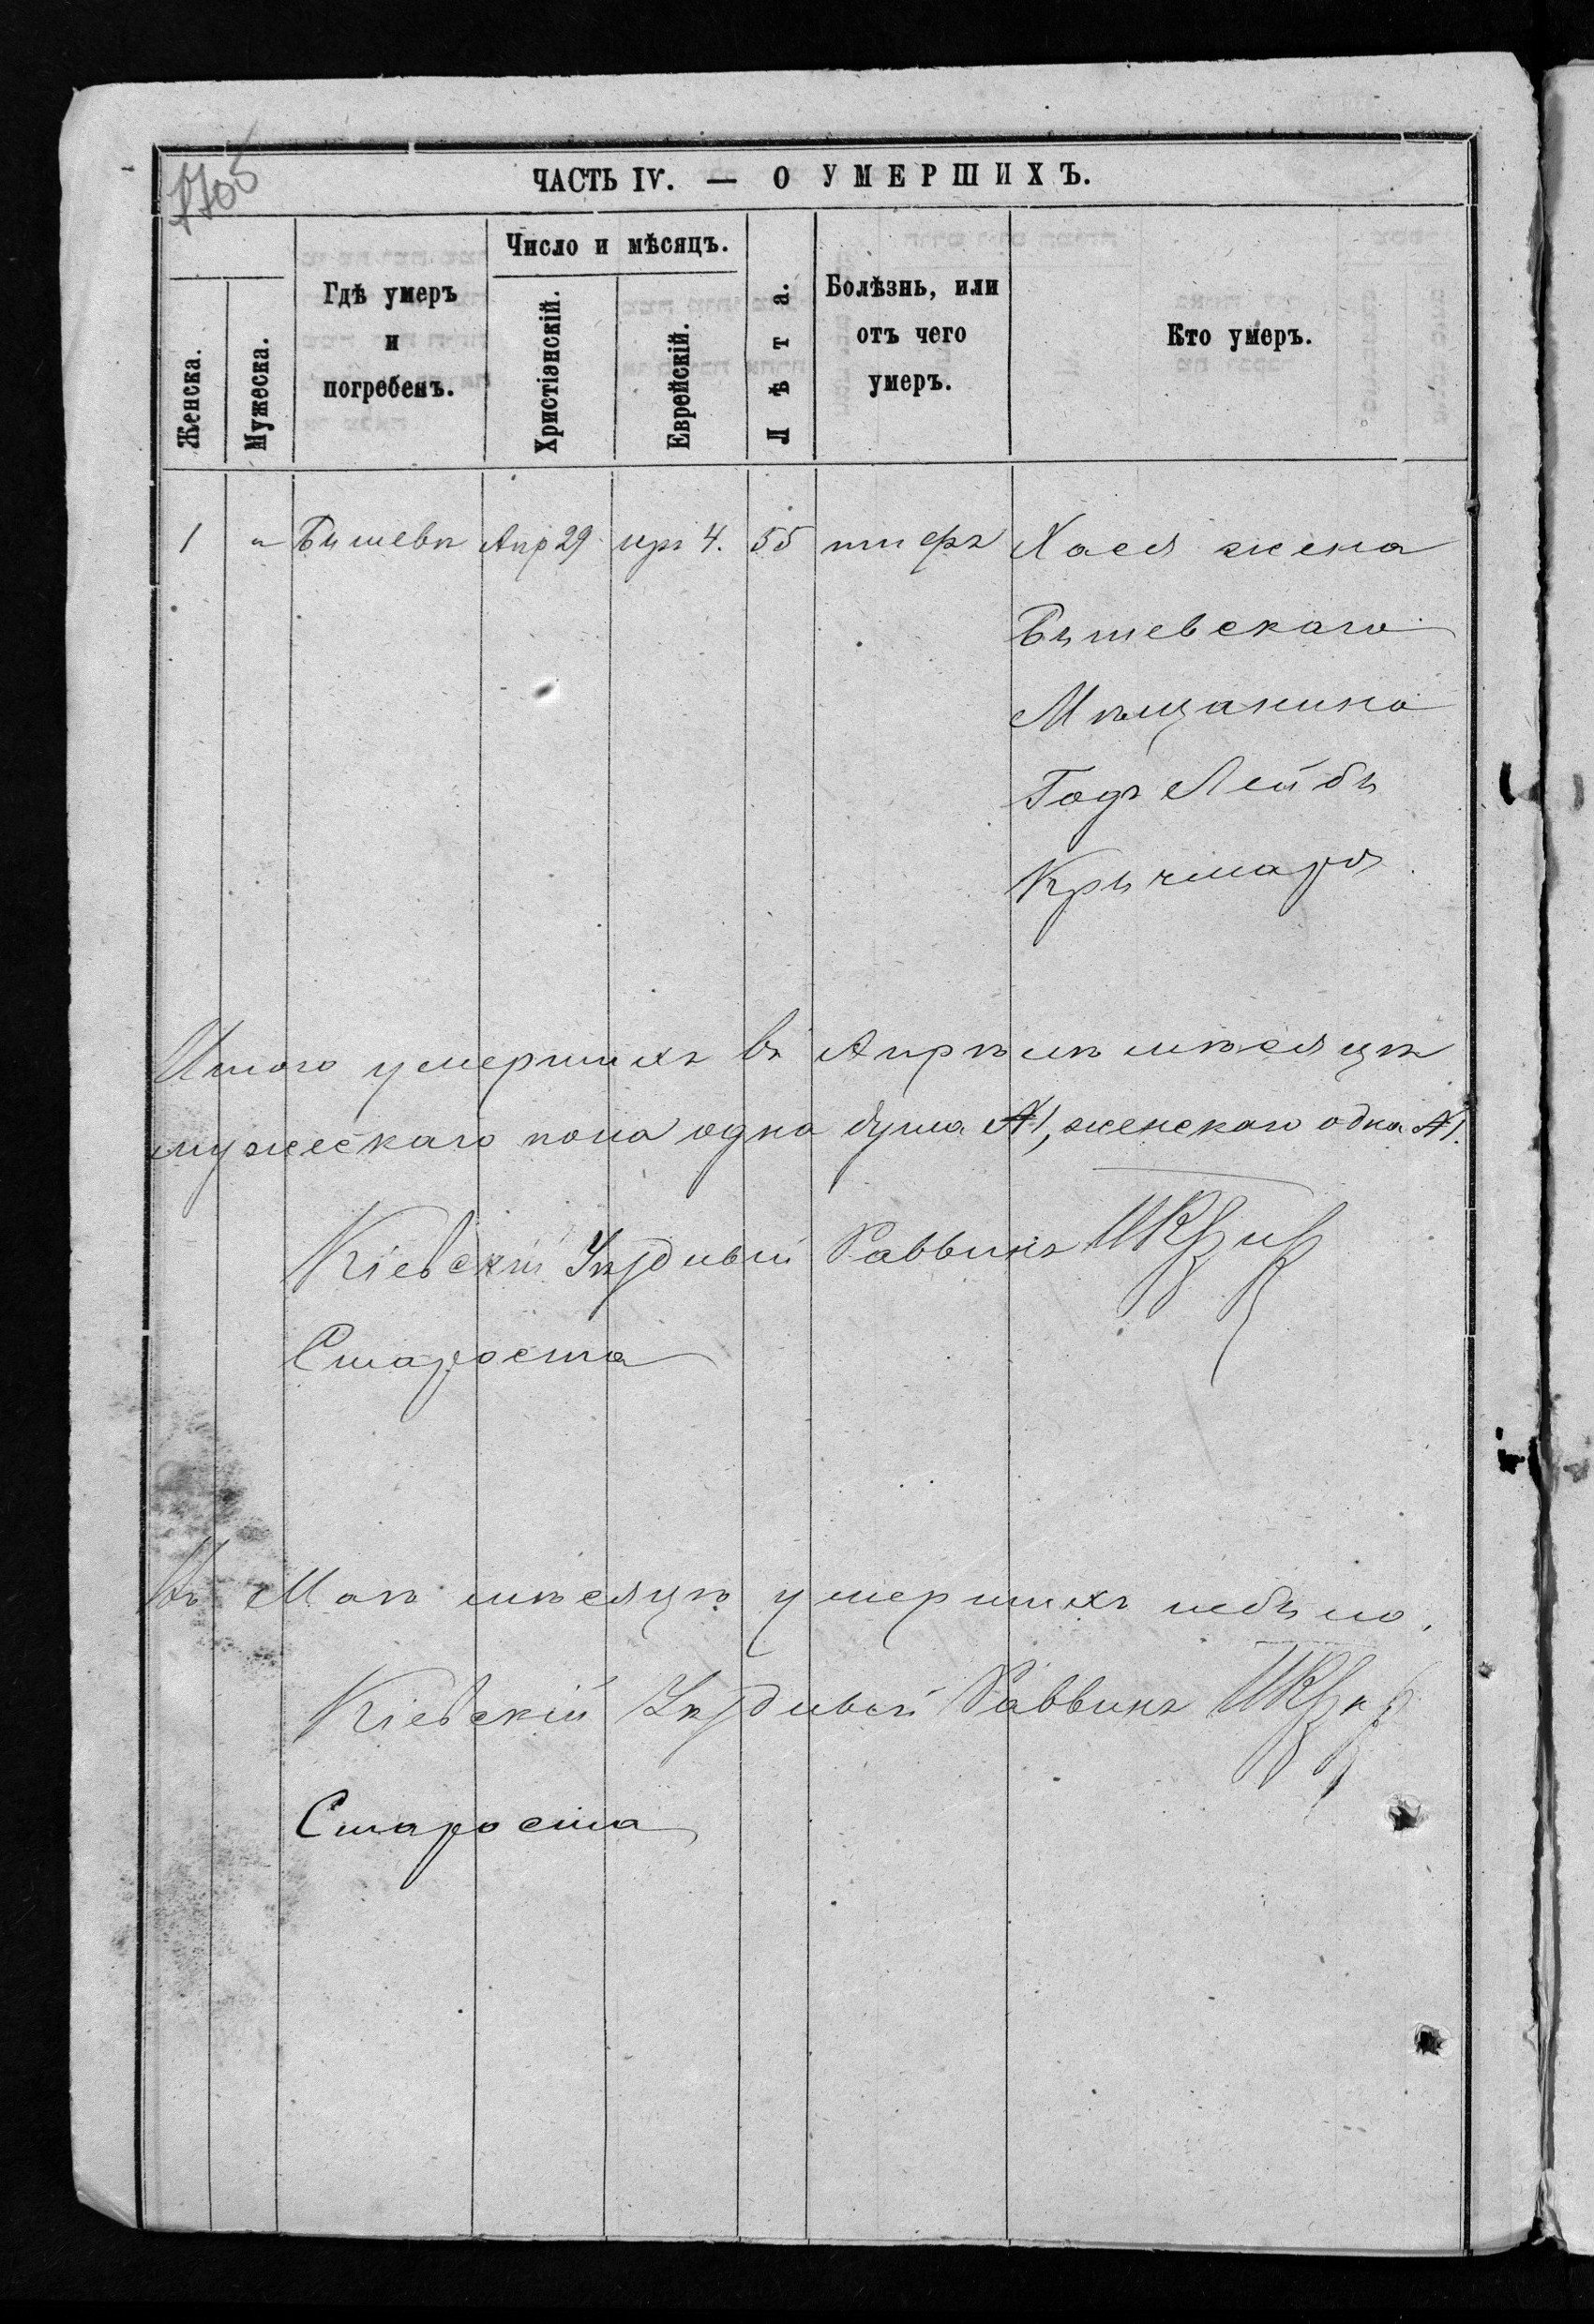 1705
ЧАСТЬ IV. — О УМЕРШИХЪ.
Женска.
Мужеска.
Гдѣ умеръ
и
погребенъ.
Число и мѣсяцъ.
Христіанскій.
Еврейскій.
Лѣта.
Болѣзнь, или
отъ чего
умеръ.
Кто умеръ.
1 " Бышевѣ Апр 29 иръ 4. 55 тифъ Хася жена
Бышевскаго
Мѣщанина
Годъ Лейбы
Крычмаря
Итого умершихъ въ Апрѣлѣ мѣсяцѣ
мужескаго пола одна душа №1, женскаго одна №1.
Кіевскій Уѣздный Раввинъ
Староста
Въ Маѣ мѣсяцѣ умершихъ небыло.
Кіевскій Уѣздный Раввинъ
Староста